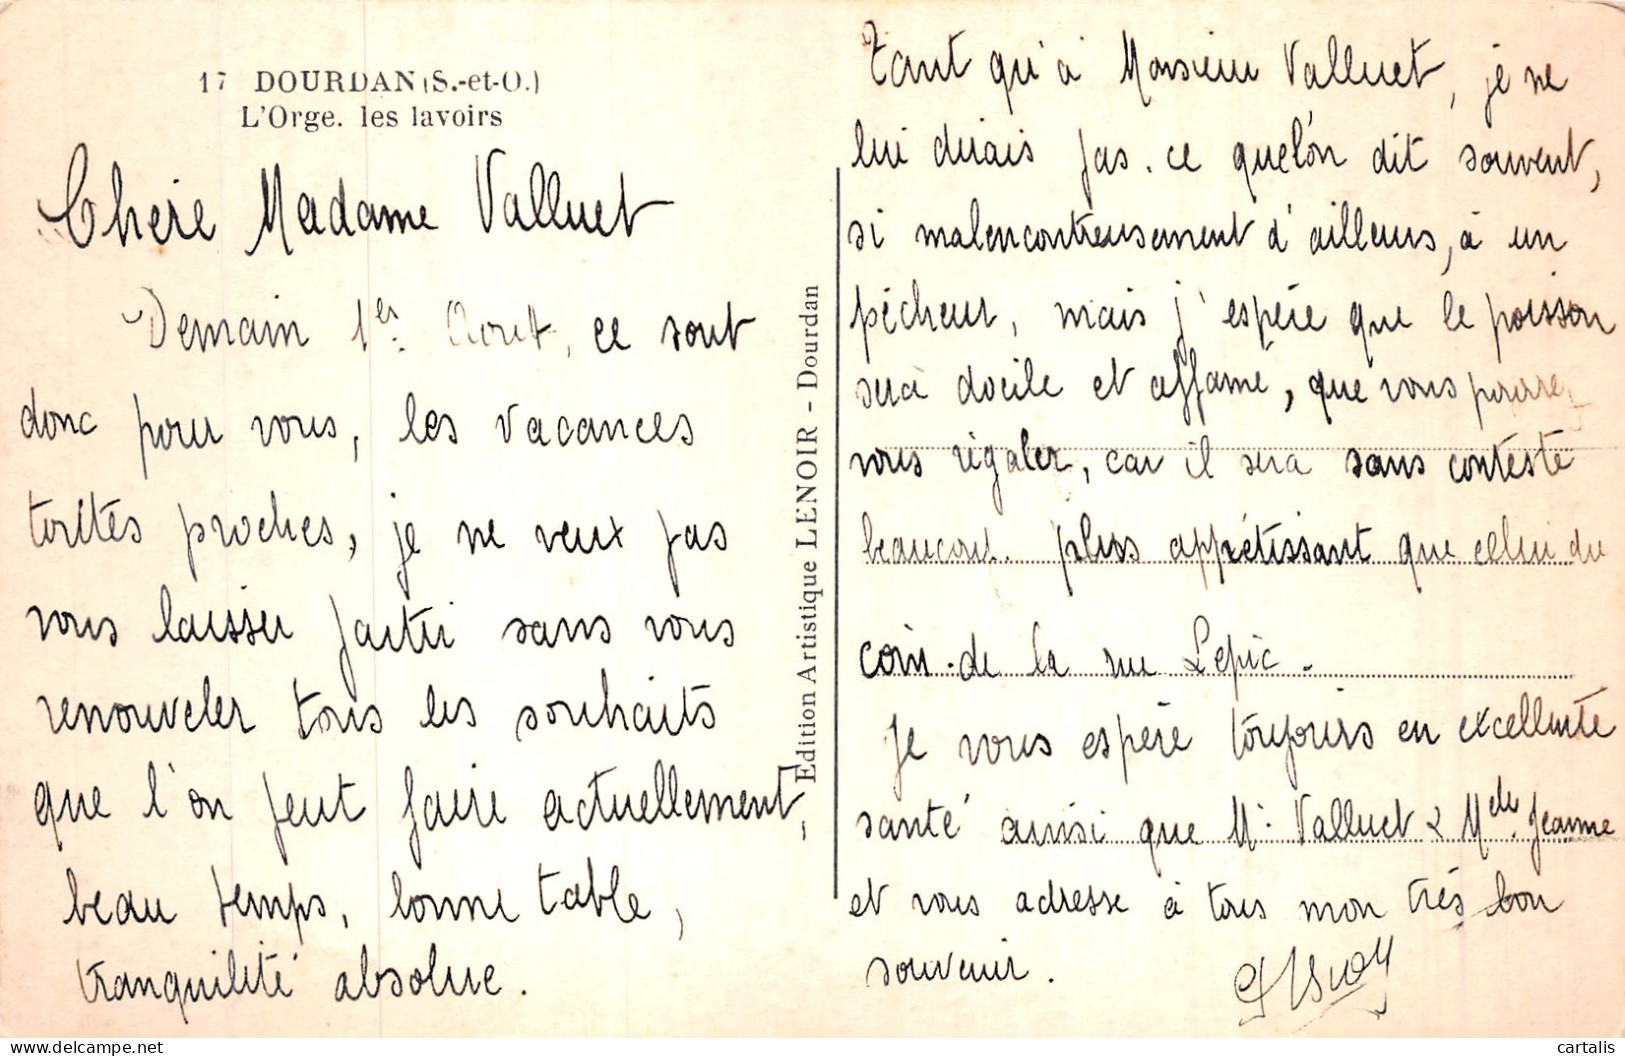 17 DOURDAN (S.-et-O.)
L'Orge. les lavoirs
Chère Madame Valluet
Demain 1er Aout, ce sont
donc pour vous, les vacances
toutes proches, je ne veux pas
vous laisser partir sans vous
renouveler tous les souhaits
que l'on peut faire actuellement,
beau temps, bonne table,
tranquilité absolue.
Edition Artistique LENOIR - Dourdan
Tant qu'à Monsieur Valluet, je ne
lui dirais pas. ce quel'on dit souvent,
si malencontreusement d'ailleurs, à un
pécheur, mais j'espère que le poisson
sera docile et affamé, que vous pourrez
vous régaler, car il sera sans conteste
beaucoup plus appétissant que celui du
coin de la rue Lepic.
Je vous espère toujours en excellente
santé ainsi que Mr Valluet & Melle Jeanne
et vous adresse à tous mon très bon
souvenir.
cartalis